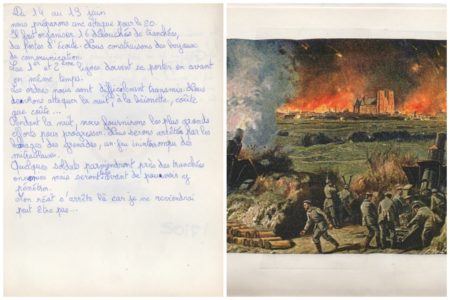 Du 14 au 19 juin
nous préparons une attaque pour le 20.
Il faut organiser 16 débouchés de tranchées,
des postes d'écoute. Nous construisons des boyaux
de communication.
Les 1ère et 2ème lignes doivent se porter en avant
en même temps.
Les ordres nous sont difficilement transmis. Nous
devrons attaquer la nuit, à la baïonnette, coûte
que coûte...
Pendant la nuit, nous fournirons les plus grands
efforts pour progresser. Nous serons arrêtés par les
barrages des grenades, un feu ininterrompu des
mitrailleuses.
Quelques soldats parviendront près des tranchées
ennemies mais seront avant de pouvoir y
pénétrer.
Mon récit s'arrête là car je ne reviendrai
peut être pas...